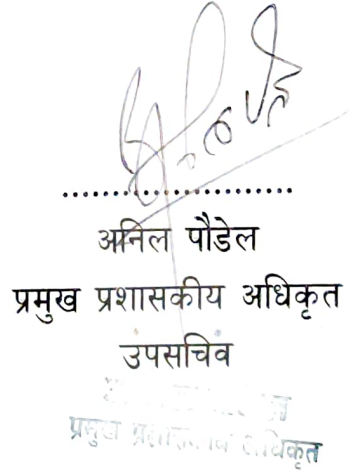 ..........................................
अनिल पौडेल
प्रमुख प्रशासकीय अधिकृत
उपसचिव
प्रमुख प्रशासकीय अधिकृत